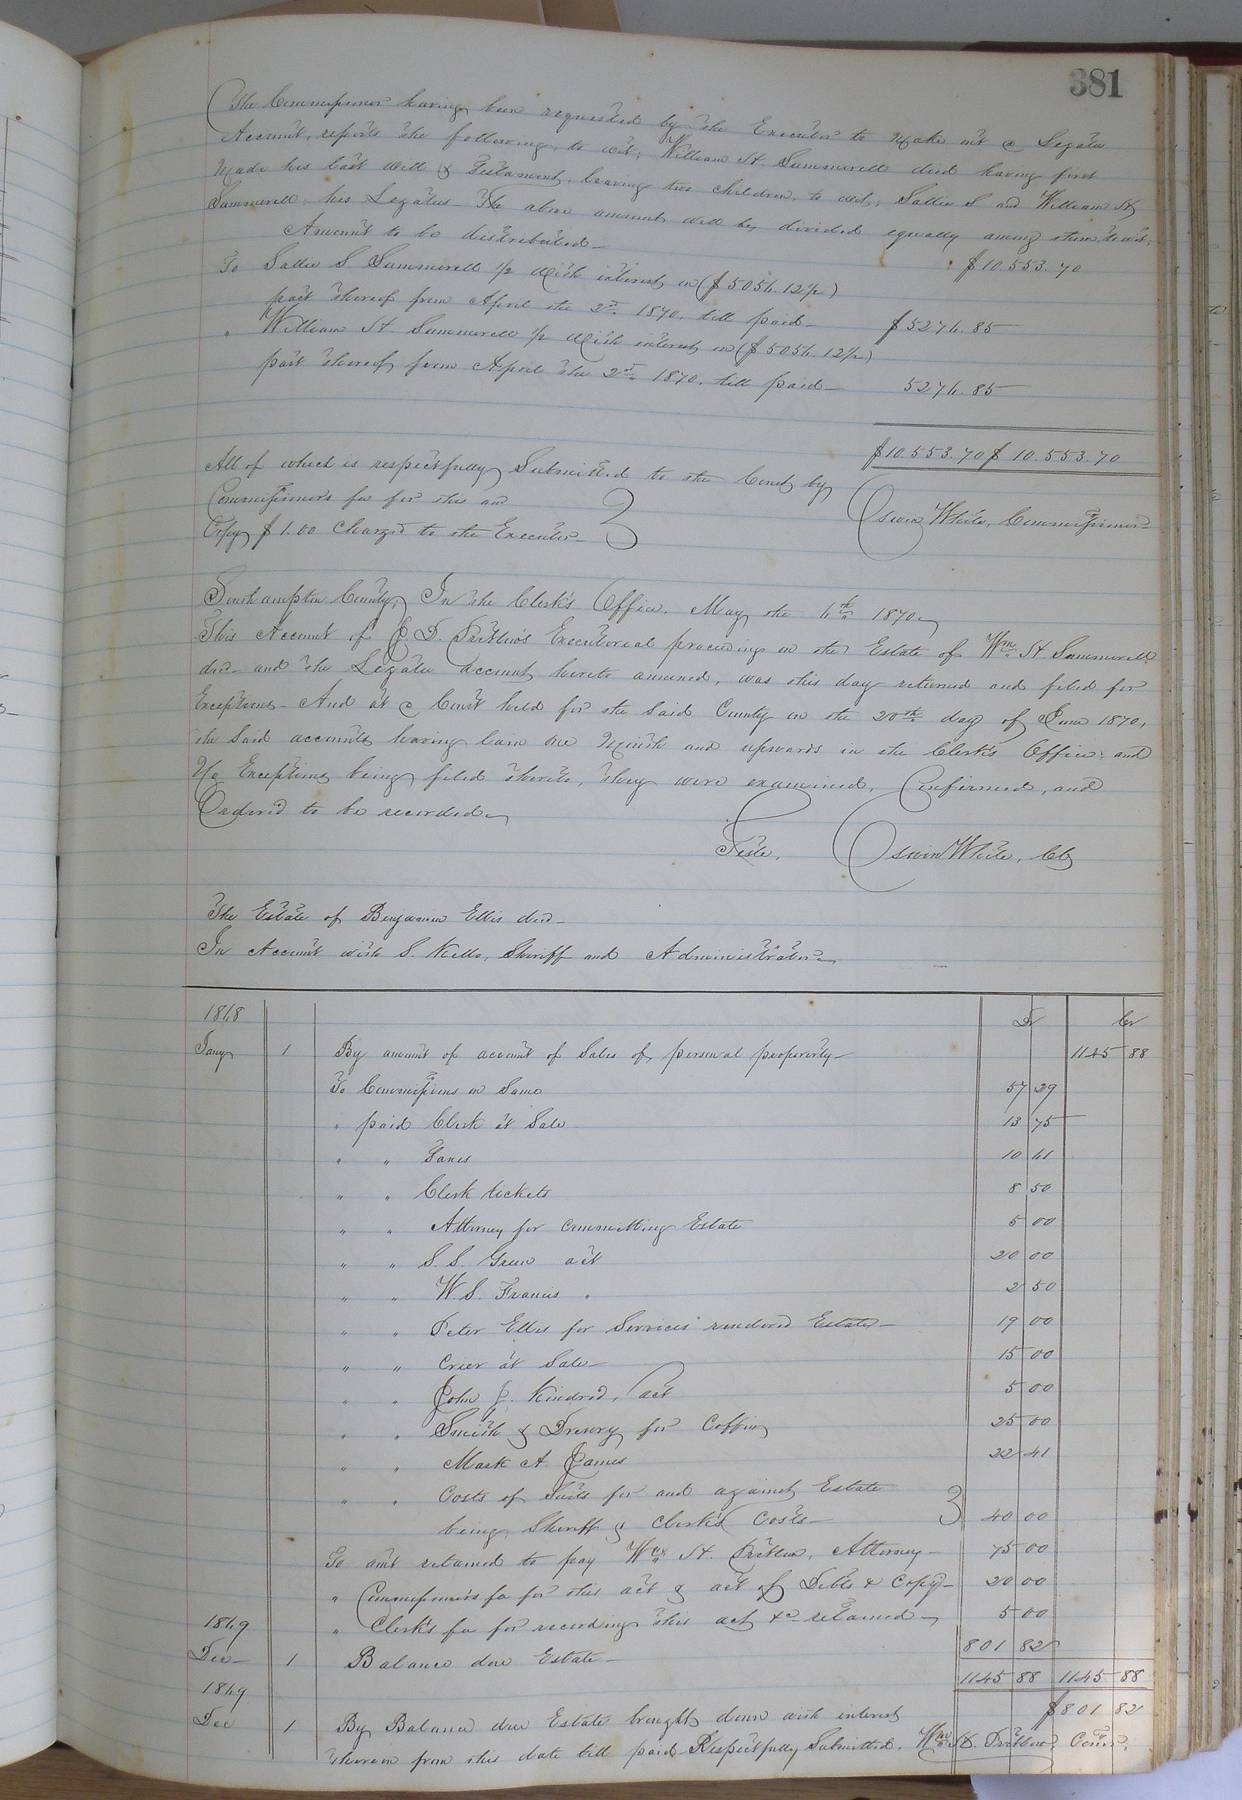 381
The Commissioner having been requested by the Executor to make out a Legatee
Account, reports the following, to wit; William H. Summerell died having first
made his last will & Testament, leaving two children, to wit; Sallie S and William H
Summerell his Legatees. The above amount will be divided equally among them, to wit;
Amount to be distributed — $10.553.70
To Sallie S Summerell 1/2 with interest on ($5056.12 1/2)
part thereof from April the 2d 1870, till paid — $5276.85
" William H. Summerell 1/2 with interest on ($5056.12 1/2)
part thereof from April the 2d 1870, till paid — 5276.85
$10.553.70 $10.553.70
All of which is respectfully Submitted to the Court by
Commissioner's fee for this and
Oswin White, Commissioner
Copy $1.00 charged to the Executor
Southampton County, In the Clerk's Office, May the 6th 1870.
This Account of J. D. Pretlow's Executorial proceeding on the Estate of Wm H Summerell
decd and the Legatee account hereto annexed, was this day returned and filed for
Exceptions — And at a Court held for the said County on the 20th day of June 1870,
the said accounts having lain one month and upwards in the Clerk's Office; and
No Exceptions being filed thereto, they were examined, Confirmed, and
Ordered to be recorded
Teste, Oswin White, Clk
The Estate of Benjamin Ellis decd
In Account with S. Kello, Sheriff and Administrator
1868 Dr Cr
Jany 1 By amount of account of Sales of personal property 1145 88
To Commissions on Same 57 29
" paid Clerk at Sale 13 75
" " Taxes 10 41
" " Clerk tickets 8 50
" " Attorney for committing Estate 5 00
" " S. S. Green act 20 00
" " W. S. Francis " 2 50
" " Peter Ellis for Services rendered Estate 19 00
" " Crier at Sale 15 00
" " John J. Kindred, act 5 00
" " Smith & Drewry for Coffin 25 00
" " Mark A James 22 41
" " Costs of Suits for and against Estate
being Sheriff & Clerk's Costs 40 00
To amt retained to pay Wm H. Pretlow, Attorney 75 00
" Commissioner's fee for this act & act of Debts & Copy 20 00
1869 " Clerk's fee for recording this act &c retained 5 00
Dec 1 Balance due Estate 801 82
1145 88 1145 88
1869 $801 82
Dec 1 By Balance due Estate brought down with interest
thereon from this date till paid Respectfully Submitted. Wm H. Pretlow, Comr.